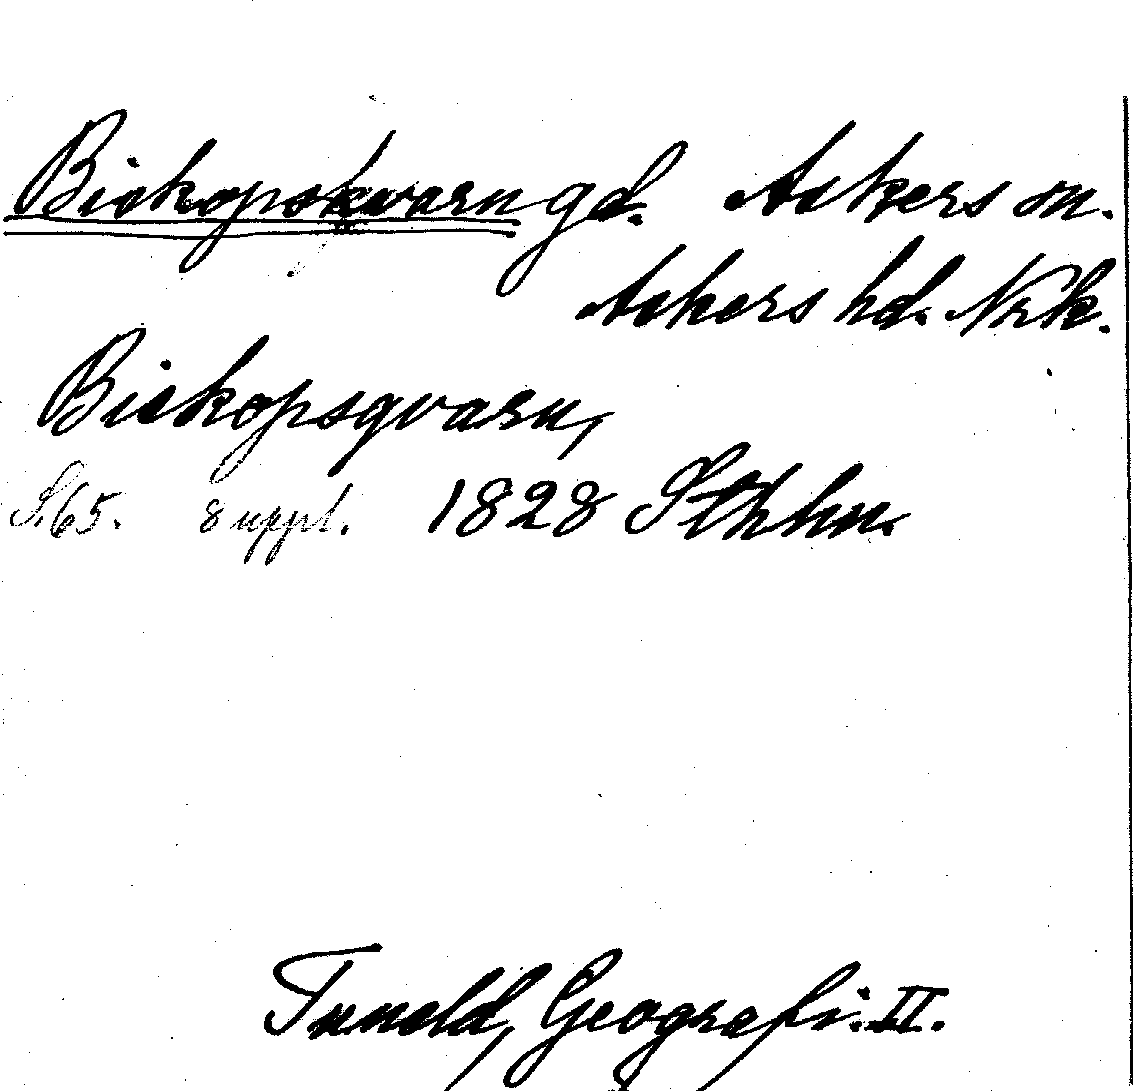 Biskopskvarn gd. Askers sn.
Askers hd. Nrk.
Biskopsqvarn,
S. 65. 8 uppl. 1828 Sthlm.
Tuneld, Geografi. II.